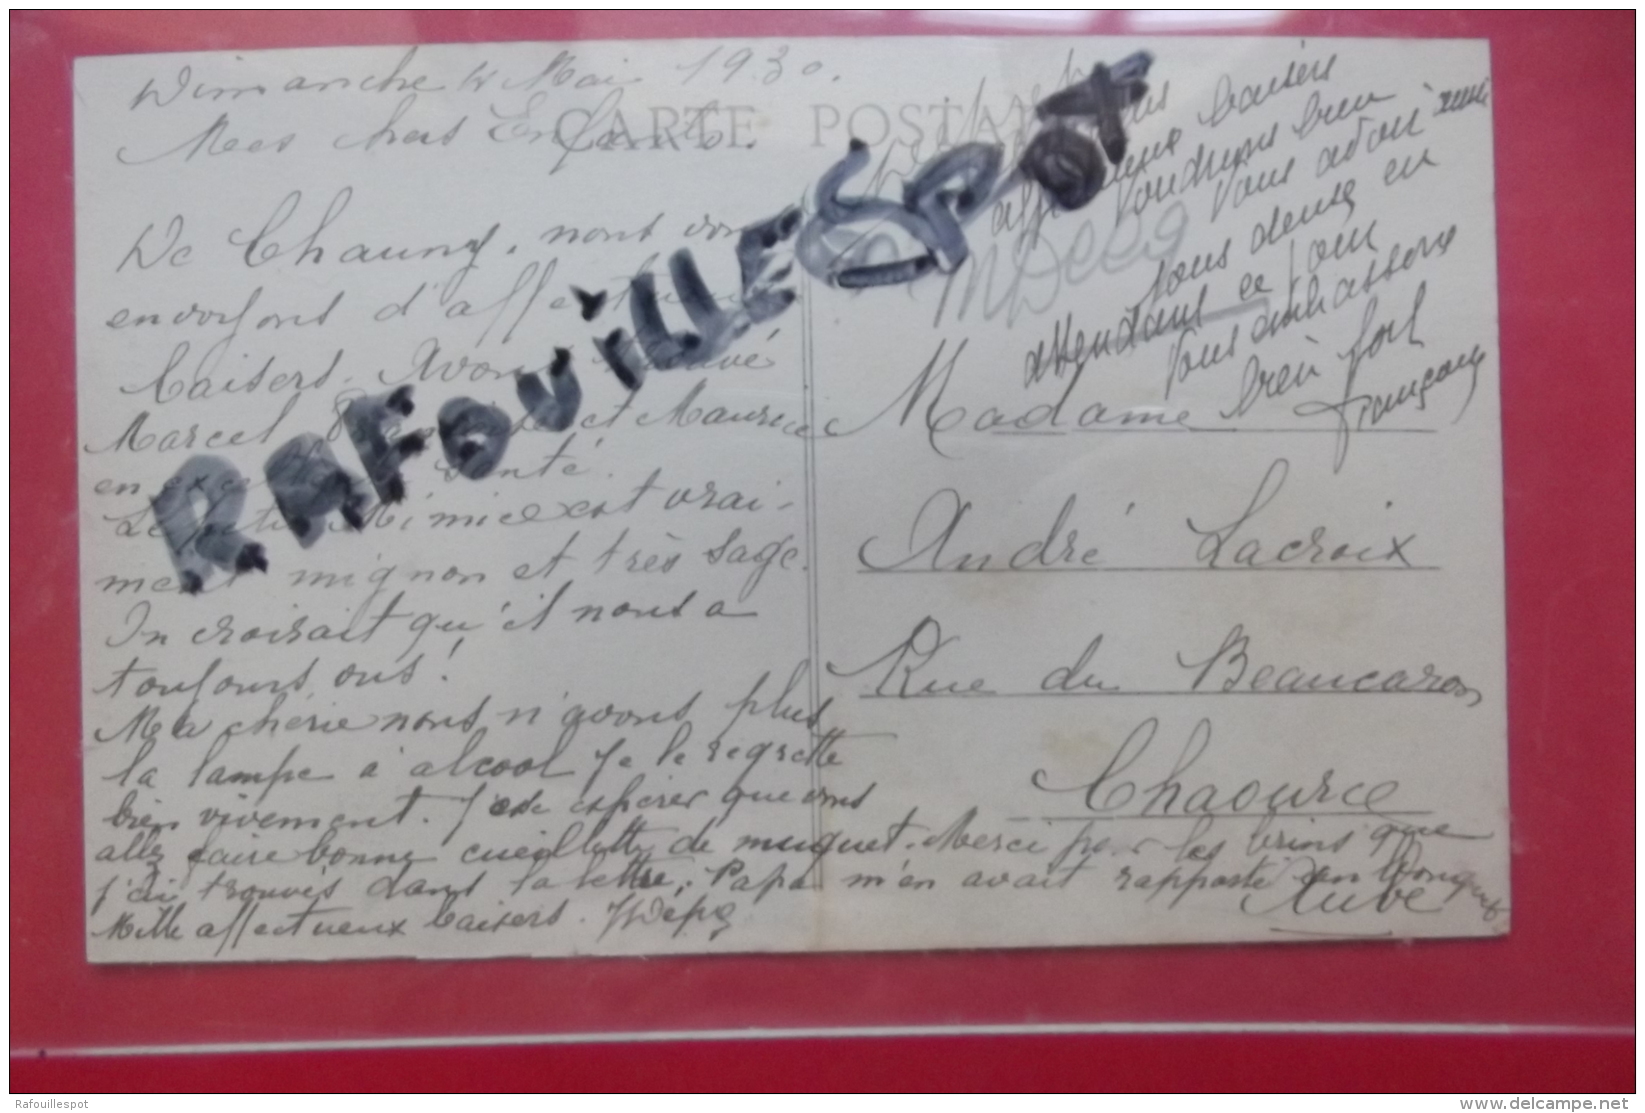 Dimanche 4 Mai 1930.
CARTE POSTALE
Mes chers Enfants.
De Chauny, nous vous
envoyons d'affectueux
baisers. Avons trouvé
Marcel et Maurice
en excellente santé.
Le petit Mimi est vrai-
ment mignon et très sage.
On croirait qu'il nous a
toujours vus!
Ma chérie nous n'avons plus
la lampe à alcool je le regrette
bien vivement. espérer que vous
allez faire bonne cueillette de muguet. Merci pour les brins que
j'ai trouvés dans la lettre, Papa m'en avait rapporté un bouquet
Mille affectueux baisers.
affectueux baisers
voudrions bien
vous avoir
tous deux en
attendant ce jour
vous embrassons
bien fort
François
Madame
André Lacroix
Rue du Beaucaron
Chaource
Aube
RAFOUILLESPOT
Rafouillespot
www.delcampe.net